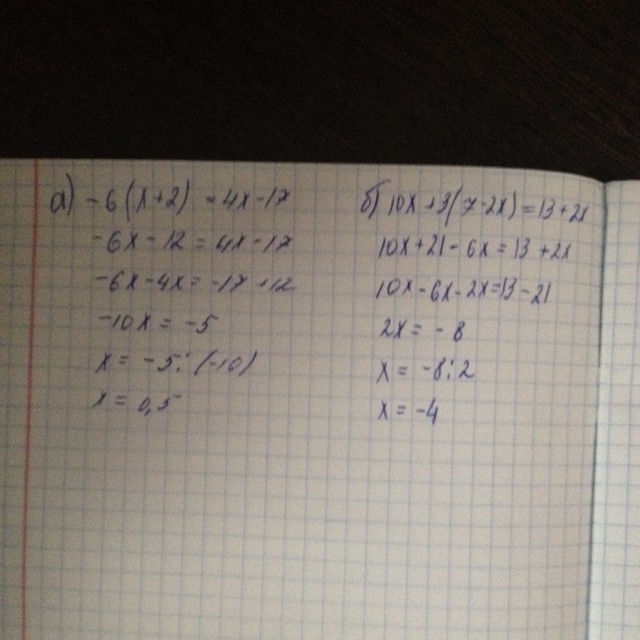 а) -6(x+2) = 4x-17
-6x-12 = 4x-17
-6x-4x = -17+12
-10x = -5
x = -5:(-10)
x = 0,5
б) 10x+3(7-2x)=13+2x
10x+21-6x=13+2x
10x-6x-2x=13-21
2x = -8
x = -8:2
x = -4